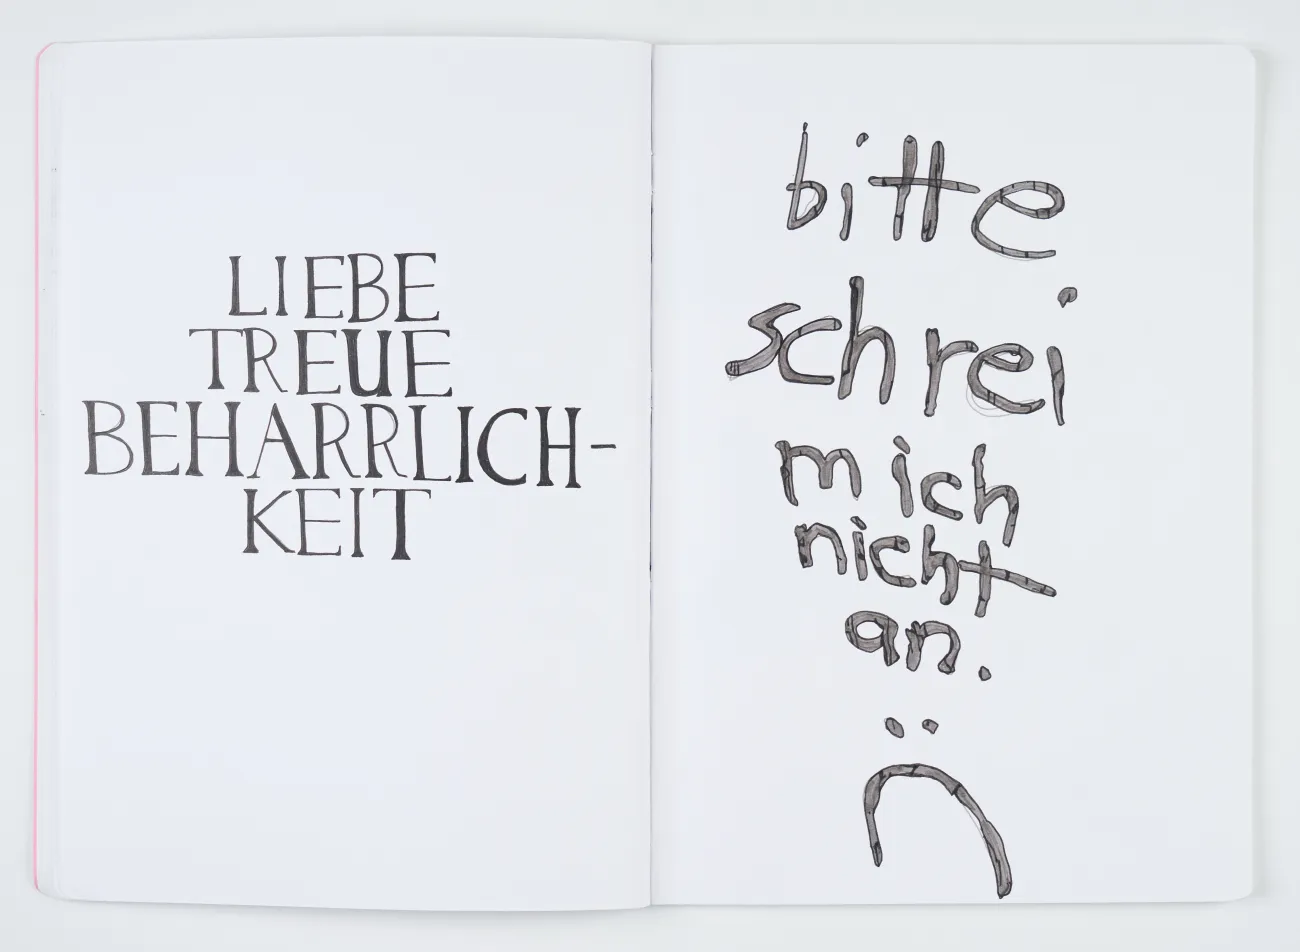 LIEBE
TREUE
BEHARRLICH-
KEIT
bitte
schrei
mich
nicht
an.